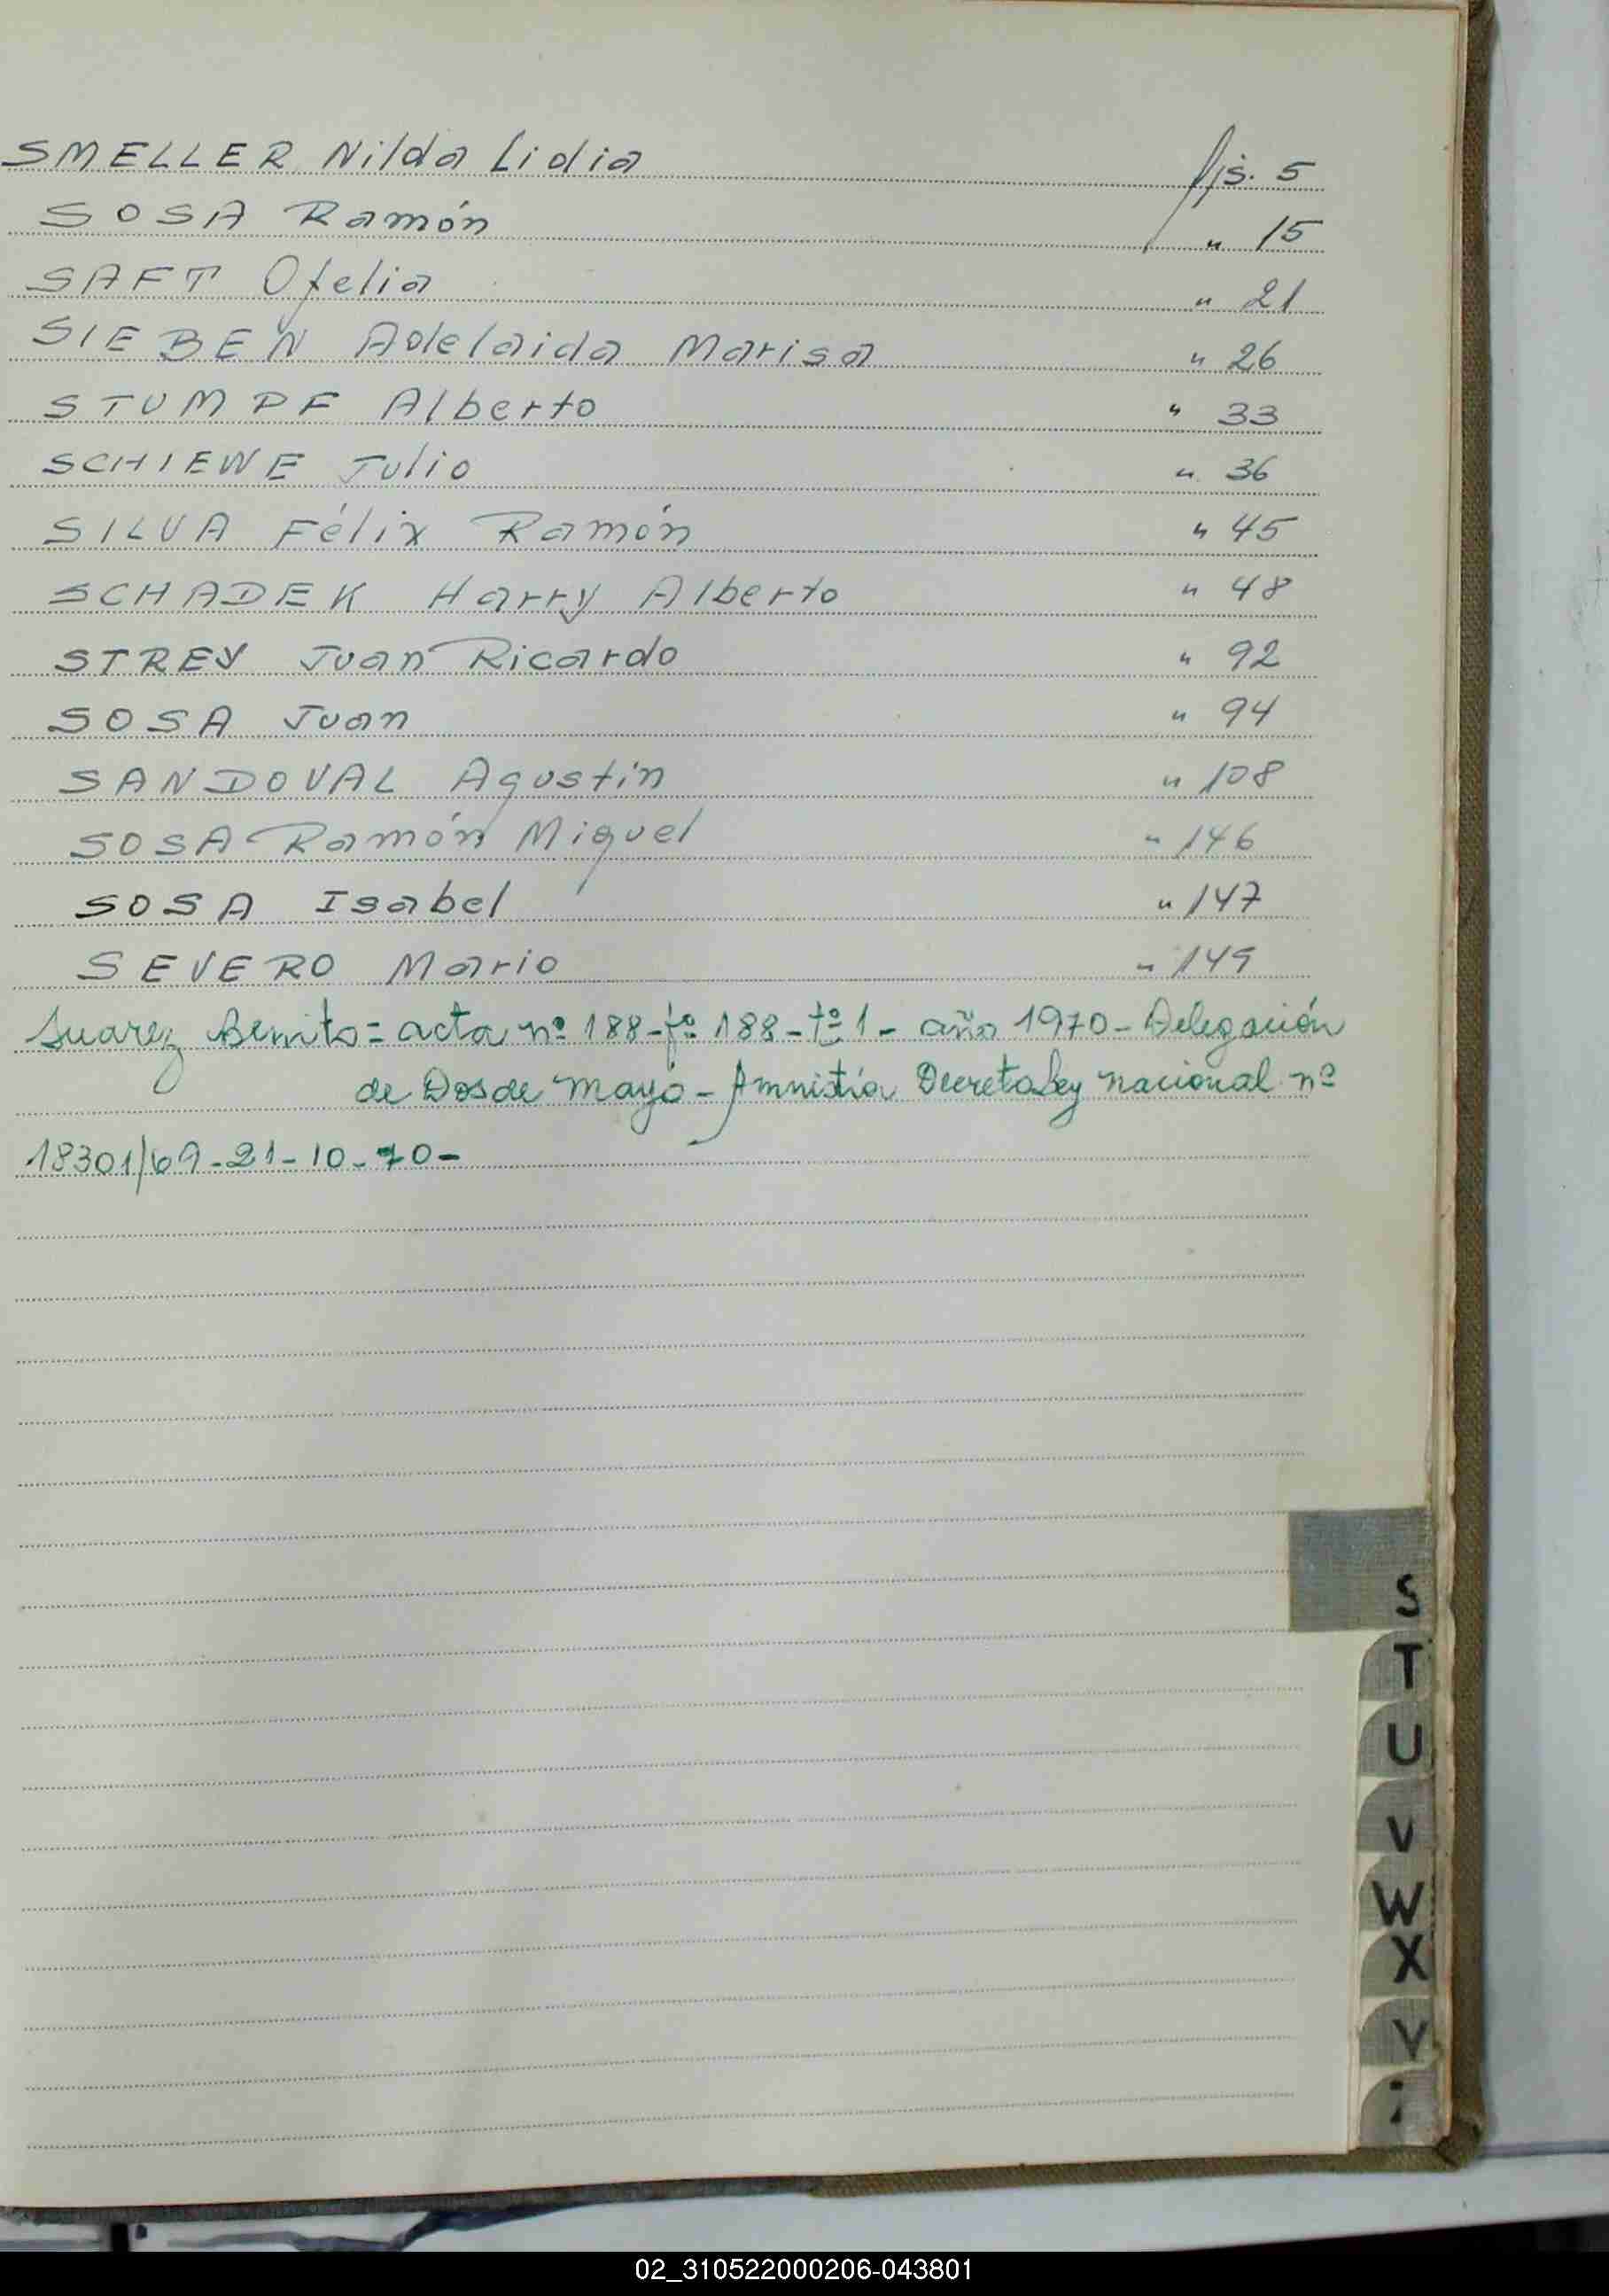 SMELLER Nilda Lidia fjs. 5
SOSA Ramón " 15
SAFT Ofelia " 21
SIEBEN Adelaida Marisa " 26
STUMPF Alberto " 33
SCHIEWE Julio " 36
SILVA Félix Ramón " 45
SCHADEK Harry Alberto " 48
STREY Juan Ricardo " 92
SOSA Juan " 94
SANDOVAL Agustín " 108
SOSA Ramón Miguel " 146
SOSA Isabel " 147
SEVERO Mario " 149
Suarez Benito = acta nº 188 - fº 188 - tº 1 - año 1970 - Delegación
de Dos de Mayo - Amnistía Decreto Ley nacional nº
18301/69 - 21 - 10 - 70 -
S
T
U
V
W
X
Y
Z
02_310522000206-043801